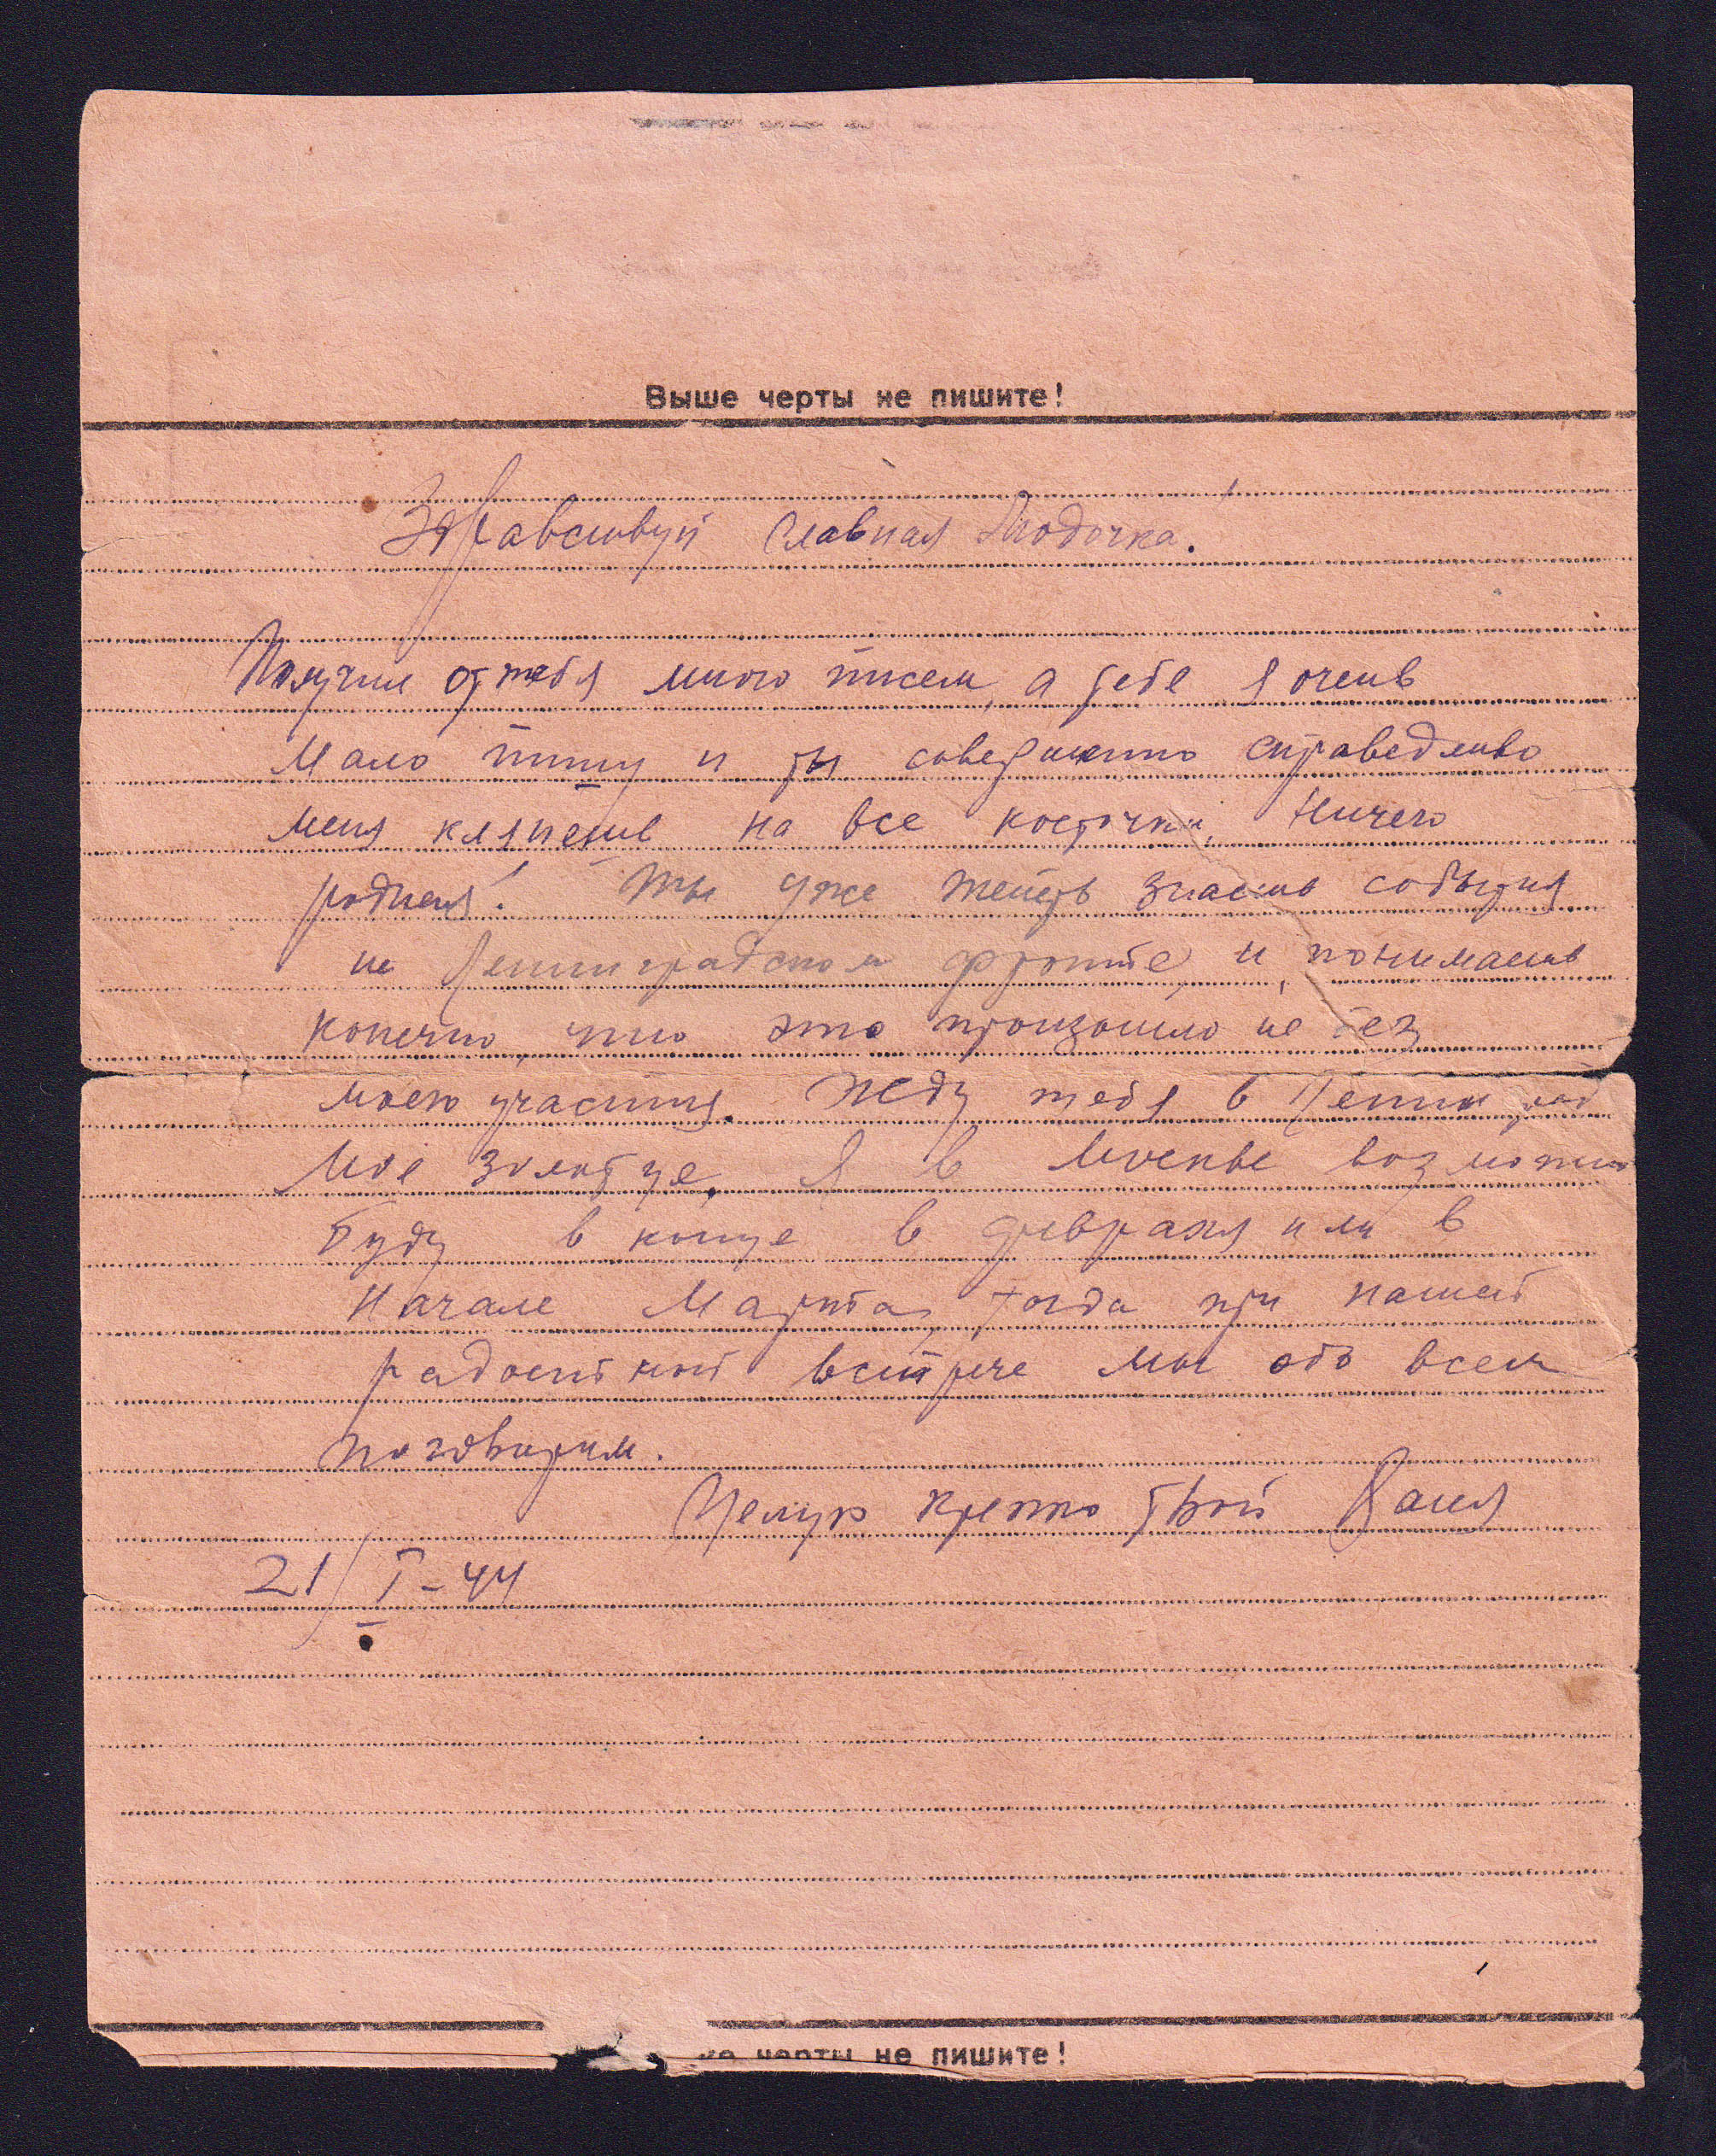 Выше черты не пишите!
Здравствуй славная Людочка.
Получил от тебя много писем, а тебе я очень
мало пишу и ты совершенно справедливо
меня клянешь на все косточки. Ничего
родная! Ты уже теперь знаешь события
на Ленинградском фронте, и понимаешь
конечно, что это произошло не без
моего участия. Жду тебя в Ленинград
мое золотце. Я в Москве возможно
буду в конце в февраля или в
начале марта, тогда при нашей
радостной встрече мы обо всем
поговорим.
Целую крепко твой Ваня
21/I-44
же черты не пишите!